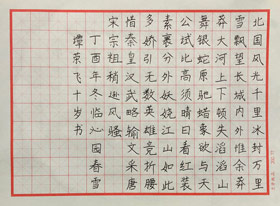 北国风光千里冰封万里
雪飘望长城内外惟余莽
莽大河上下顿失滔滔山
舞银蛇原驰蜡象欲与天
公试比高须晴日看红装
素裹分外妖娆江山如此
多娇引无数英雄竞折腰
惜秦皇汉武略输文采唐
宋宗祖稍逊风骚
丁酉年冬临沁园春雪
谭京飞十岁书